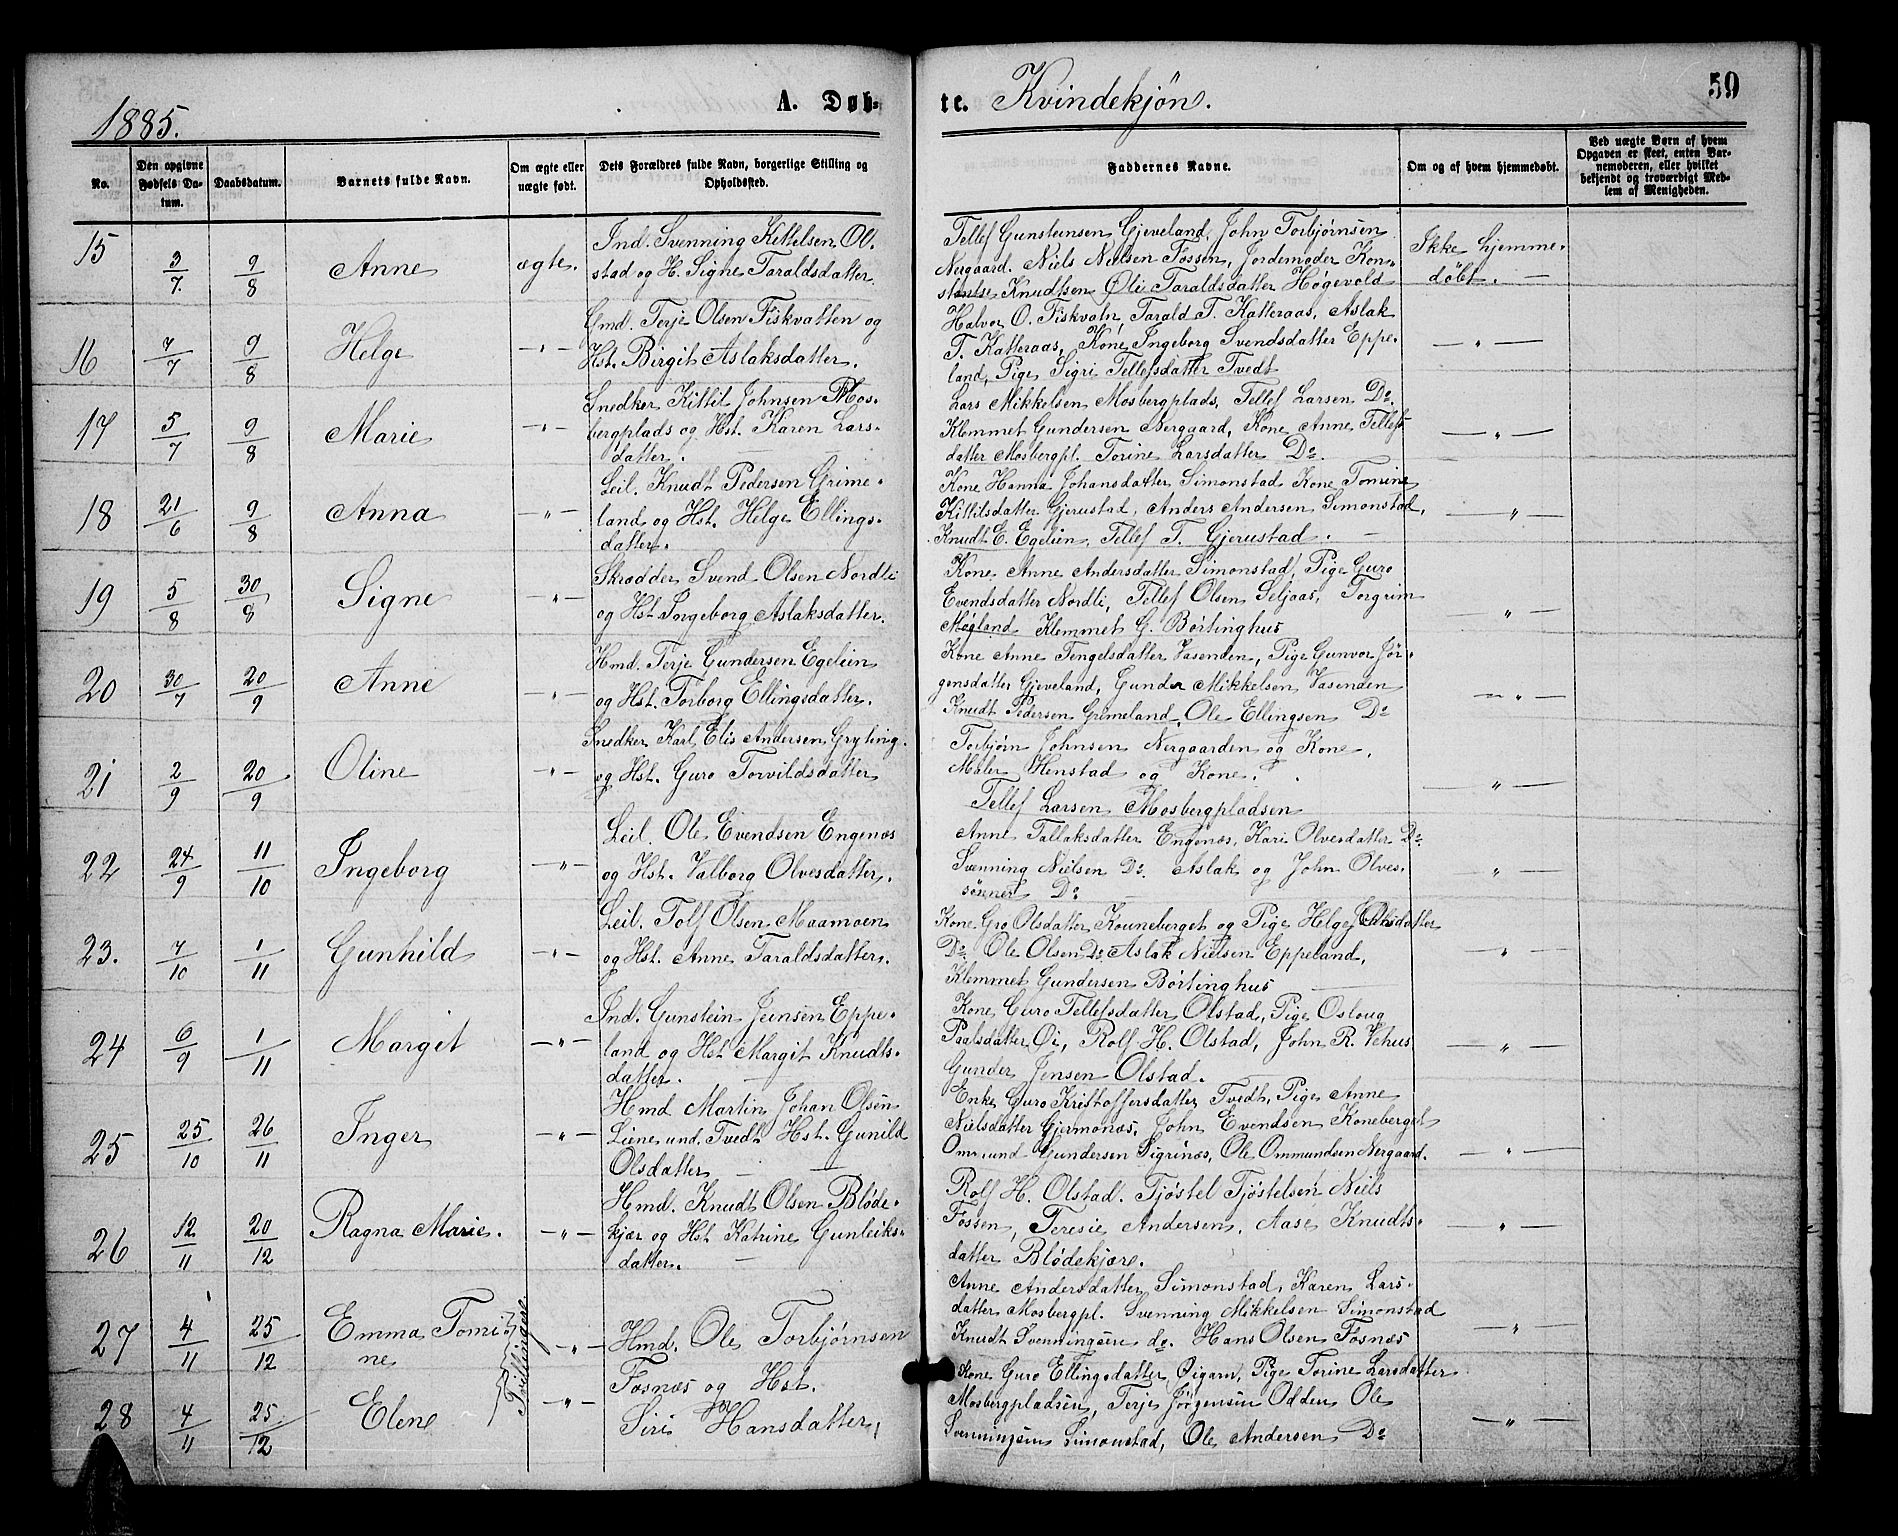 1885.
A. Døb-
te. Kvindekjøn.
59
No.
Den opgivne Fødsels Datum.
Daabsdatum.
Barnets fulde Navn.
Om ægte eller uægte født.
Dets Forældres fulde Navn, borgerlige Stilling og Opholdssted.
Faddernes Navne.
Om og af hvem hjemmedøbt.
Ved uægte Børn af hvem Opgaven er skeet, enten Barnemoderen, eller hvilket bekjendt og troværdigt Medlem af Menigheden.
15
3/7.
9/8
Anne
ægte.
Ind. Svenning Kittelsen Ol-
stad og H. Signe Taraldsdatter.
Tellef Gunsteinsen Gjeveland, John Torbjørnsen
Nergaard. Niels Nielsen Fossen, Jordemoder Kon-
stantse Knudtsen Øli Taraldsdatter Høgevold
Ikke hjemme-
døbt. —
16
7/7
9/8
Helge
—"—
Gmd. Terje Olsen Fiskvatten og
Hst. Birgit Aslaksdatter.
Halvor O. Fiskvatn, Tarald T. Katteraas, Aslak
T. Katteraas, Kone Ingeborg Svendsdatter Eppe-
land, Pige Sigri Tellefsdatter Tvedt
—"—
17
5/7
9/8
Marie
—"—
Snedker Kittil Johnsen Mos-
bergplads og Hst. Karen Lars-
datter.
Lars Mikkelsen Mosbergplads, Tellef Larsen Do.
Klemmet Gundersen Nergaard, Kone Anne Tellefs
datter Mosbergpl. Torine Larsdatter Do.
—"—
18
21/6
9/8
Anna
—"—
Leil. Knudt Pedersen Grime-
land og Hst. Helge Ellings-
datter.
Kone Hanna Johansdatter Simonstad Kone Tomine
Kittilsdatter Gjerustad, Anders Andersen Simonstad,
Knudt E. Egelien, Tellef T. Gjerustad. —
—"—
19
5/8
30/8
Signe
—"—
Skrædder Svend Olsen Nordli
og Hst Ingeborg Aslaksdatter.
Kone Anne Andersdatter Simonstad, Pige Guro
Evendsdatter Nordli, Tellef Olsen Seljaas, Torgrim
Møgland Klemmet G. Børtinghus
" —
20
30/7
20/9
Anne
—"—
Hmd. Terje Gundersen Egelien
og Hst. Torborg Ellingsdatter.
Kone Anne Tengelsdatter Vasenden, Pige Gunvor Jør-
gensdatter Gjeveland, Gunder Mikkelsen Vasenden
Knudt Pedersen Grimeland, Ole Ellingsen Do
—"—
21
2/9
20/9
Oline
—"—
Snedker Karl Elis Andersen Gryting
og Hst. Guro Torvildsdatter
Torbjørn Johnsen Nergaarden og Kone,
Maler Henstad og Kone.
Tellef Larsen Mosbergpladsen
—"—
22
24/9
11/10
Ingeborg
—"—
Leil. Ole Evendsen Engenæs
og Hst. Valborg Olvesdatter.
Anne Tallaksdatter Engenæs, Kari Olvesdatter Do.
Svenning Nielsen Do. Aslak og John Olves-
sønner Do
—"—
23.
7/10
1/11
Gunhild
—"—
Leil. Tolf Olsen Maamoen
og Hst. Anne Taraldsdatter.
Kone Gro Olsdatter Kouneberget og Pige Helge
Do. Ole Olsen Do, Aslak Nielsen Eppeland,
Klemmet Gundersen Børtinghus
"
24
6/9
1/11
Margit
—"—
Ind. Gunstein Jensen Eppe-
land og Hst Margit Knudts-
datter.
Kone Guro Tellefsdatter Olstad, Pige Osloug
Paalsdatter Øi, Rolf H. Olstad, John R. Vehus
Gunder Jensen Olstad.
—"—
25
25/10
26/11
Inger
—"—
Hmd Martin Johan Olsen
Liene und. Tvedt Hst. Gunild
Olsdatter — —
Enke Guro Kristoffersdatter Tvedt, Pige Anne
Nielsdatter Gjermonæs, John Evendsen Koneberget
Ommund Gundersen Sigrinæs, Ole Ommundsen Nergaard.
—"—
26
12/11
20/12
Ragna Marie.
—"—
Hmd. Knudt Olsen Bløde-
kjær og Hst Katrine Gunleiks-
datter. —
Rolf H. Olstad. Tjøstel Tjøstelsen Niels
Fossen, Teresie Andersen, Aase Knudts-
datter Blødekjære.
—"—
27
4/11
25/12
Emma Tomi-
ne
Tvillinger
—"—
Hmd. Ole Torbjørnsen
Fosnæs og Hst.
Anne Andersdatter Simonstad, Karen Lars-
datter Mosbergpl. Svenning Mikkelsen Simonstad
Knudt Svenningsen do. Hans Olsen Fosnæs
—"—
28
4/11
25/12
Elene
—"—
Siri Hansdatter,
Kone Guro Ellingsdatter Øigarn, Pige Torine Larsdatter
Mosbergpladsen, Terje Jørgensen Odden Ole
Svenningsen Simonstad, Ole Andersen Do
—"—